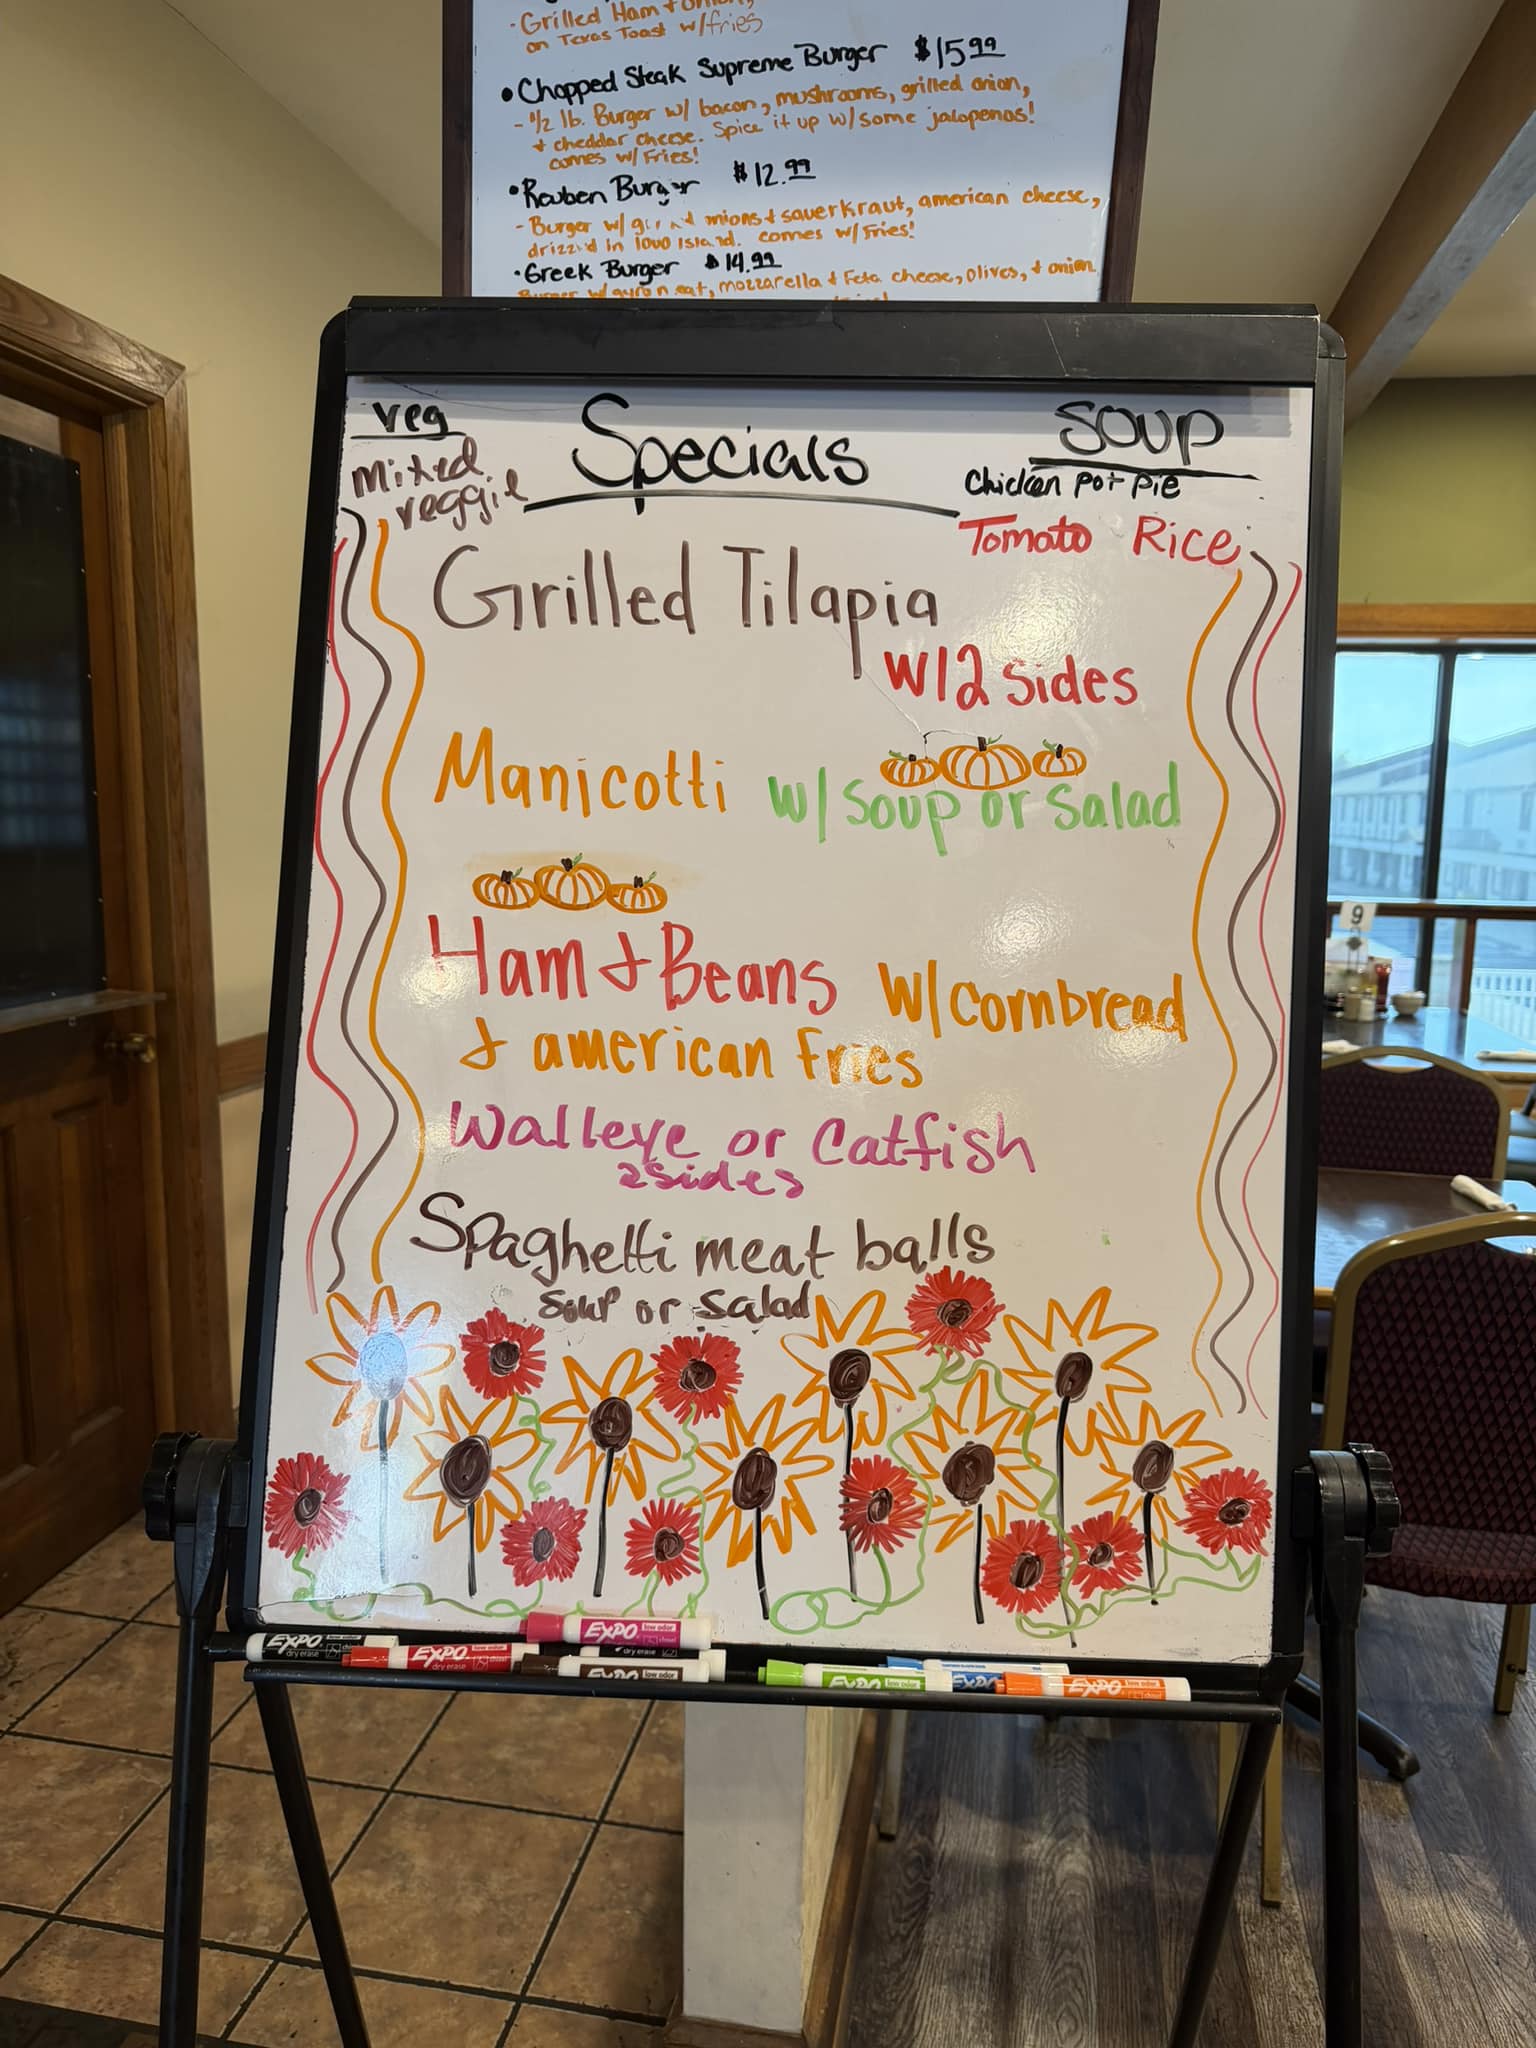 - Grilled Ham + Onion,
on Texas Toast w/fries
• Chopped Steak Supreme Burger $15.99
- 1/2 lb. Burger w/ bacon, mushrooms, grilled onion,
+ cheddar cheese. Spice it up w/some jalapenos!
comes w/ Fries!
• Reuben Burger $12.99
- Burger w/ onions + sauerkraut, american cheese,
in 1000 Island. comes w/ Fries!
• Greek Burger $14.99
Burger w/gyro meat, mozzarella + Feta cheese, olives, + onion
veg
Mixed
veggie
Specials
Soup
Chicken pot pie
Tomato Rice
Grilled Tilapia
w/2 sides
Manicotti w/ soup or salad
Ham + Beans w/cornbread
+ american fries
Walleye or Catfish
2 sides
Spaghetti meat balls
soup or salad
9
EXPO low odor
dry erase
EXPO low odor
EXPO low odor
dry erase
EXPO low odor
EXPO low odor
EXPO
EXPO low odor